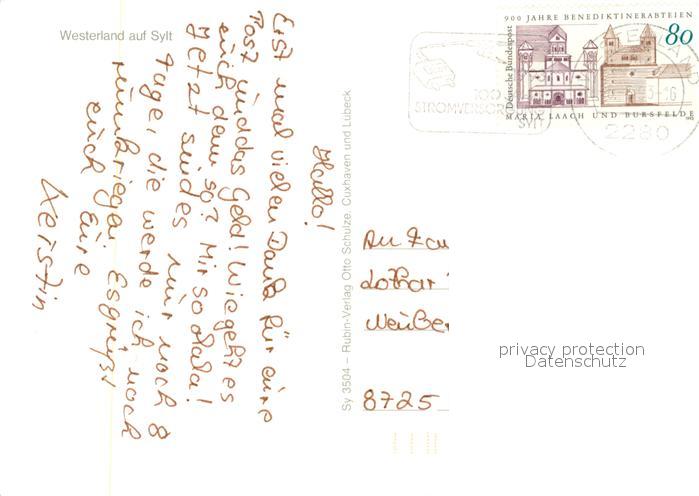 Westerland auf Sylt
Hallo!
Erst mal vielen Dank für eure
Post und das Geld! Wie geht es
euch denn so? Mir so lala!
Jetzt sind es nur noch 8
Tage, die werde ich noch
rumkriegen. Es grüßt
euch Eure
Kerstin
Sy 3504 – Rubin-Verlag Otto Schulze, Cuxhaven und Lübeck
900 JAHRE BENEDIKTINERABTEIEN
80
Deutsche Bundespost
MARIA LAACH UND BURSFELDE
100
STROMVERSOR
SYLT
2280
An Fam
Lothar
8725
privacy protection
Datenschutz